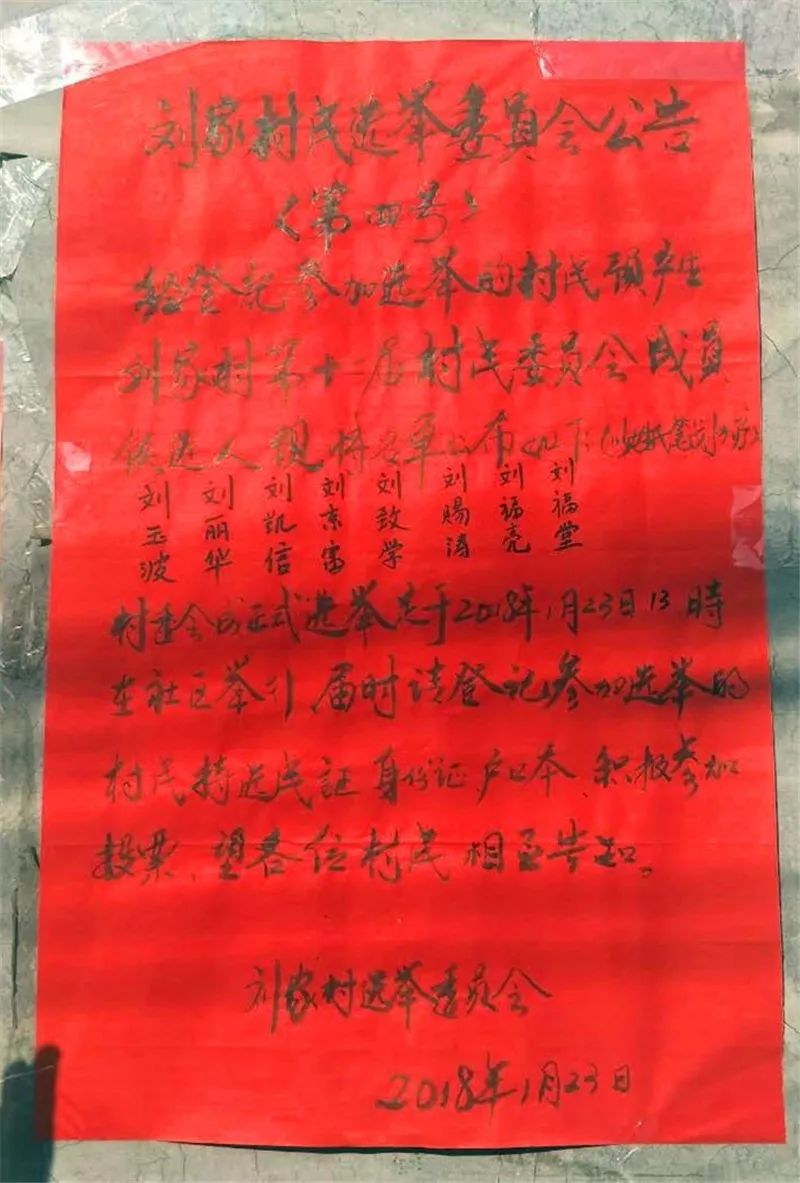 刘家村民选举委员会公告
(第四号)
经登记参加选举的村民预产生
刘家村第十一届村民委员会成员
候选人现将名单公布如下:(以姓氏笔划为序)
刘玉波
刘丽华
刘凯信
刘京富
刘致学
刘赐涛
刘福亮
刘福堂
村委会的正式选举定于2018年1月23日13時
在社区举行、届时请登记参加选举的
村民持选民証身份证户口本、积极参加
投票、望各位村民相互告知。
刘家村选举委员会
2018年1月23日